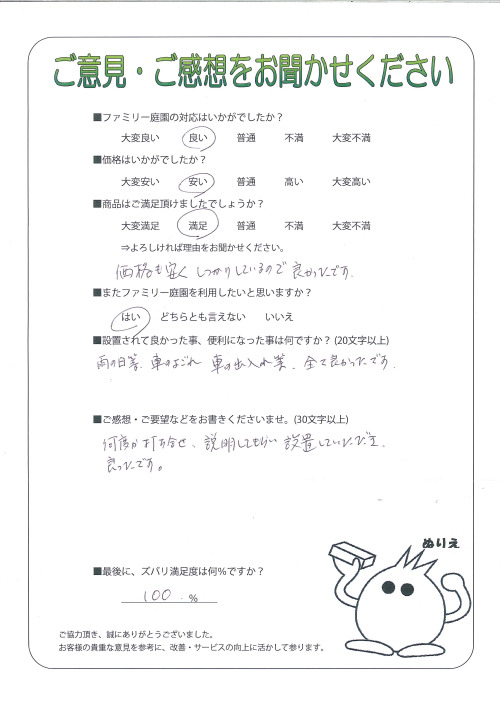 ご意見・ご感想をお聞かせください
■ファミリー庭園の対応はいかがでしたか？
大変良い 良い 普通 不満 大変不満
■価格はいかがでしたか？
大変安い 安い 普通 高い 大変高い
■商品はご満足頂けましたでしょうか？
大変満足 満足 普通 不満 大変不満
⇒よろしければ理由をお聞かせください。
価格も安く しっかりしているので 良かったです.
■またファミリー庭園を利用したいと思いますか？
はい どちらとも言えない いいえ
■設置されて良かった事、便利になった事は何ですか？(20文字以上)
雨の日等、車のよごれ 車の出入れ等、全て良かったです.
■ご感想・ご要望などをお書きくださいませ。(30文字以上)
何度か打ち合せ、説明してもらい 設置していただき、
良ったです。
ぬりえ
■最後に、ズバリ満足度は何％ですか？
100 %
ご協力頂き、誠にありがとうございました。
お客様の貴重な意見を参考に、改善・サービスの向上に活かして参ります。